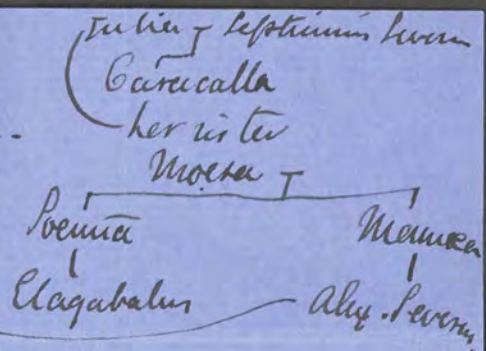 Julia Septimius Severus
Caracalla
her sister
Moesa
Soemia Mamaea
Elagabalus Alex. Severus